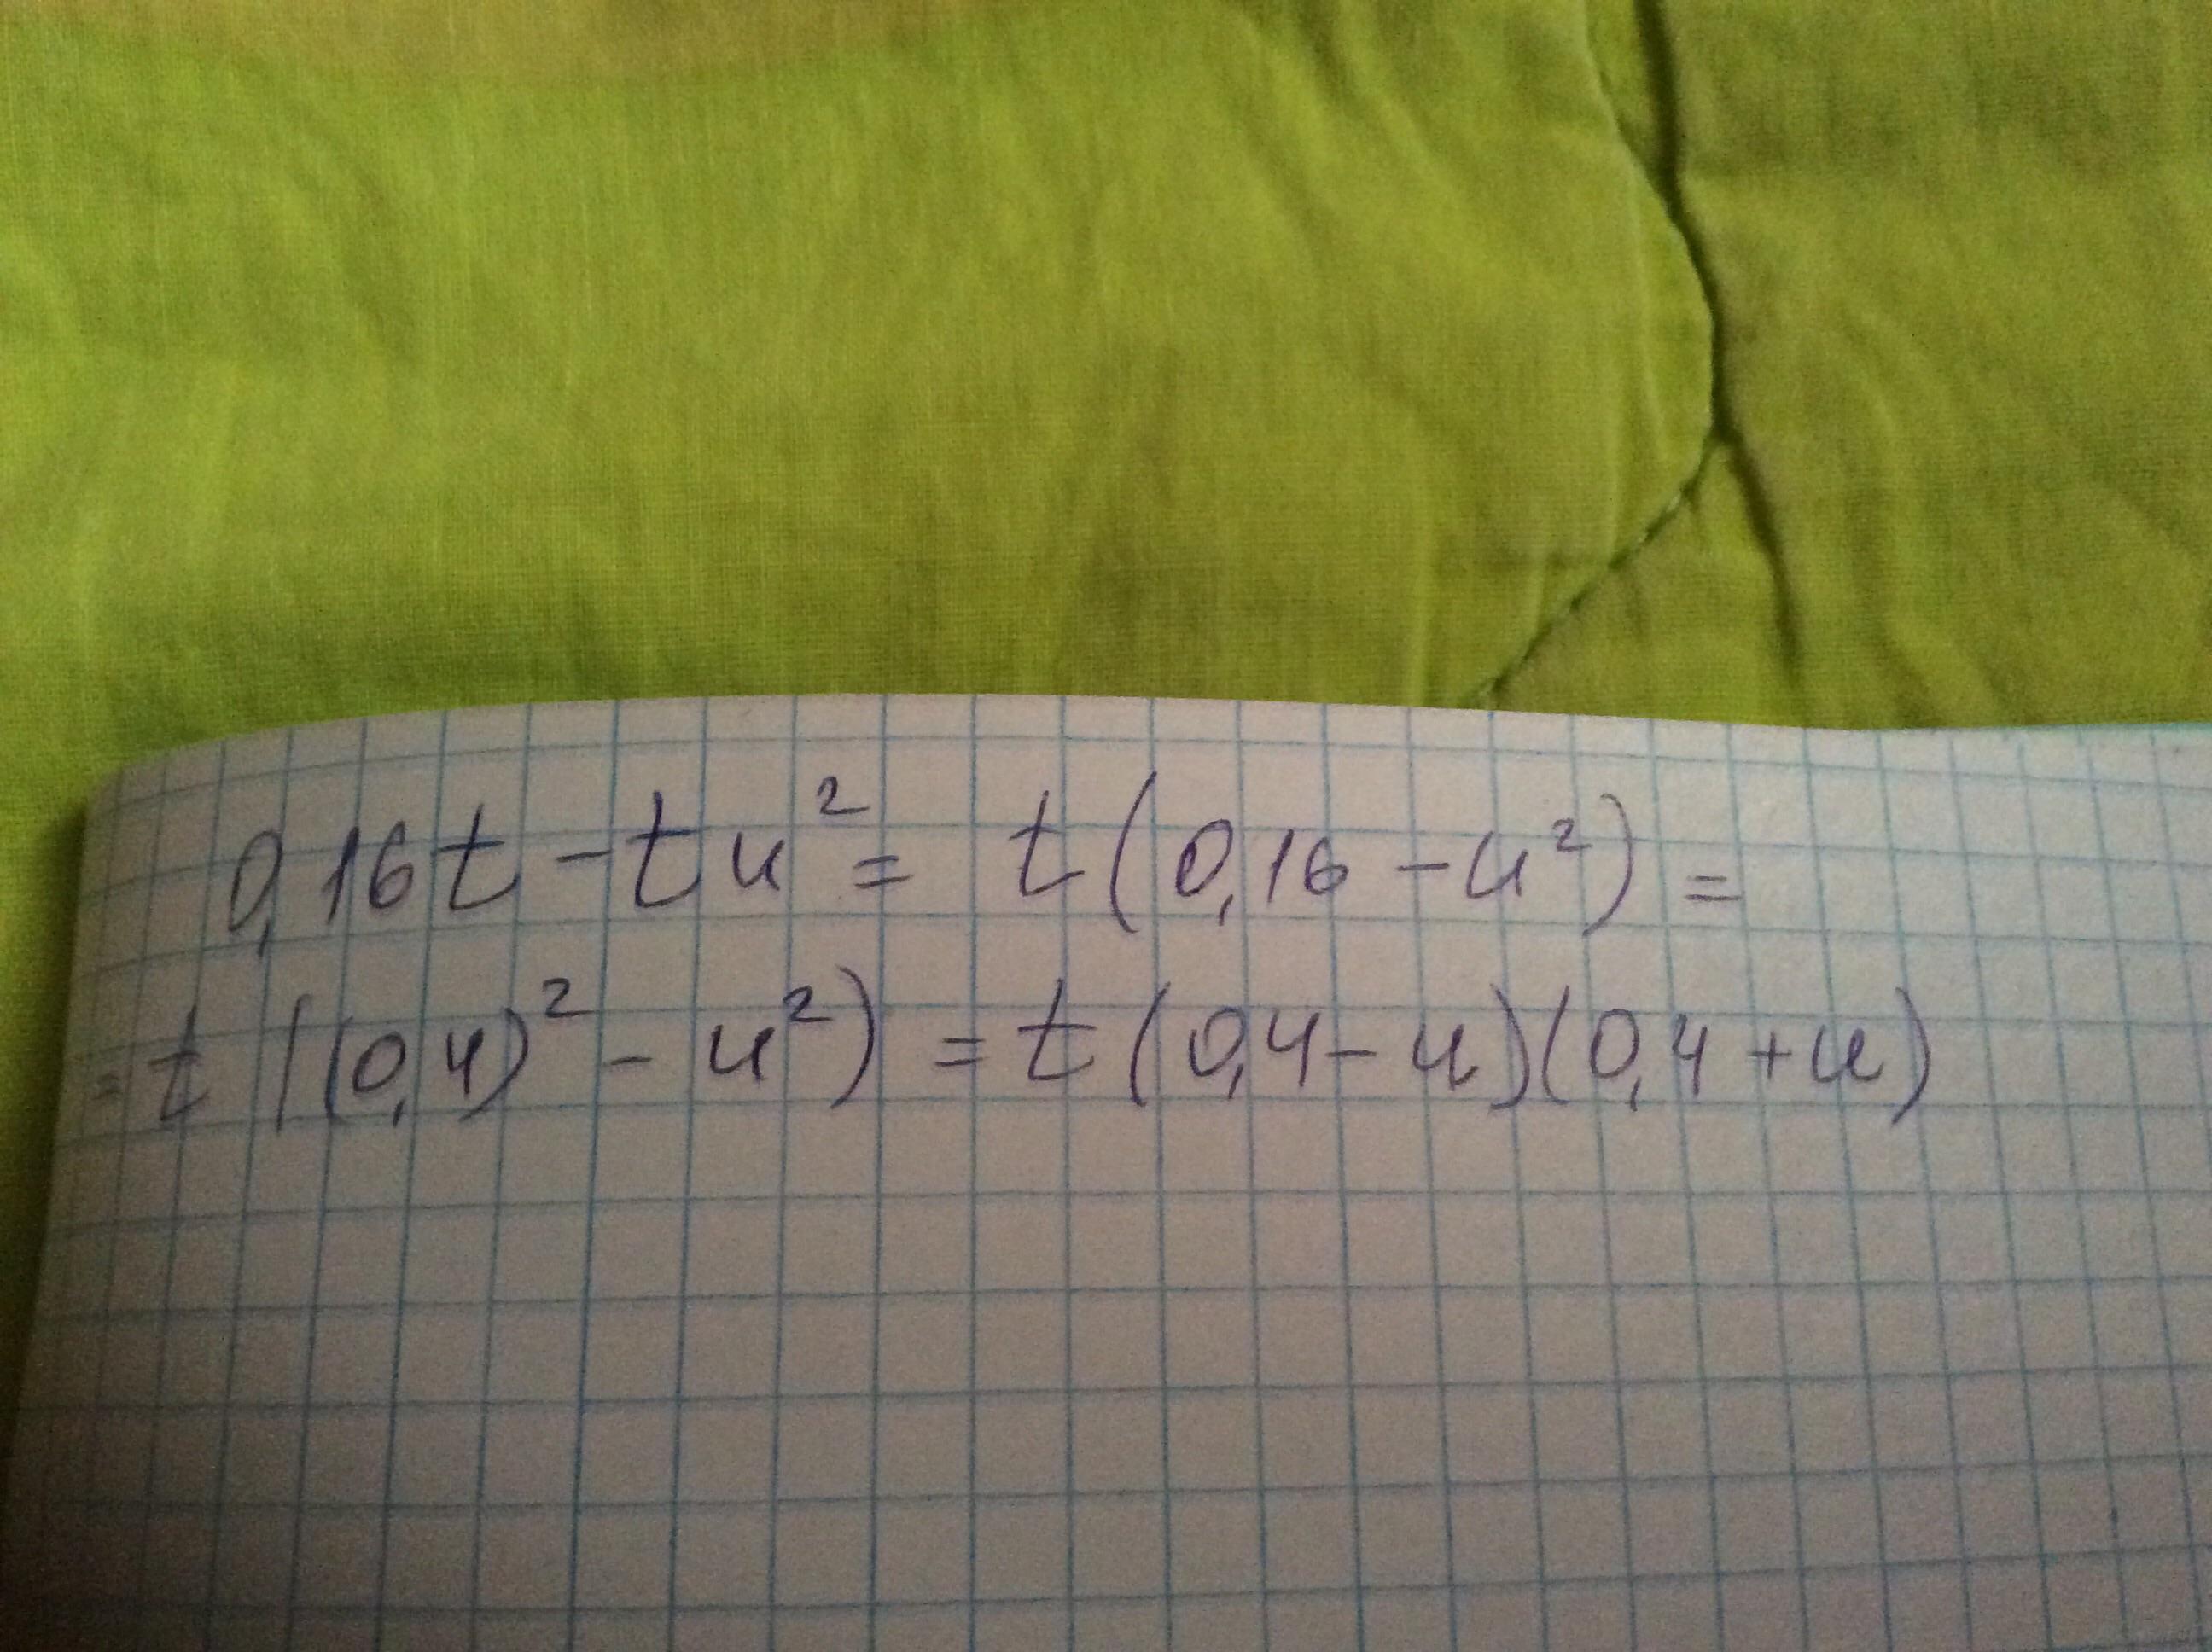 0,16t - tu² = t(0,16 - u²) =
= t((0,4)² - u²) = t(0,4 - u)(0,4 + u)